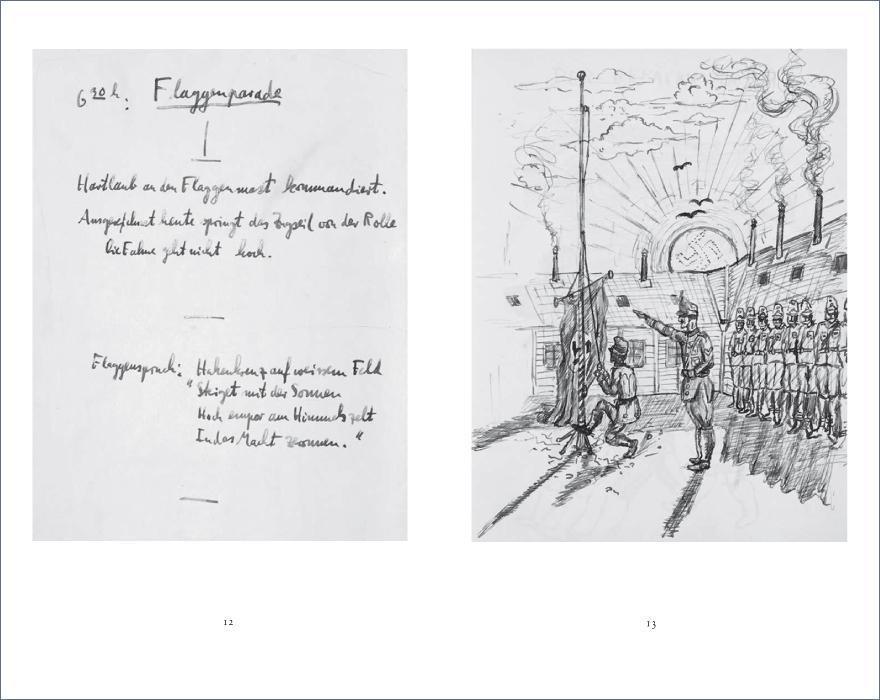 6 30 h: Flaggenparade
Hartlaub an den Flaggenmast kommandiert.
Ausgezeichnet heute springt das Zugseil von der Rolle
Die Fahne geht nicht hoch.
Flaggenspruch: Hakenkreuz auf weissem Feld
"Steiget mit der Sonnen
Hoch empor am Himmelszelt
In das Macht"
12
13